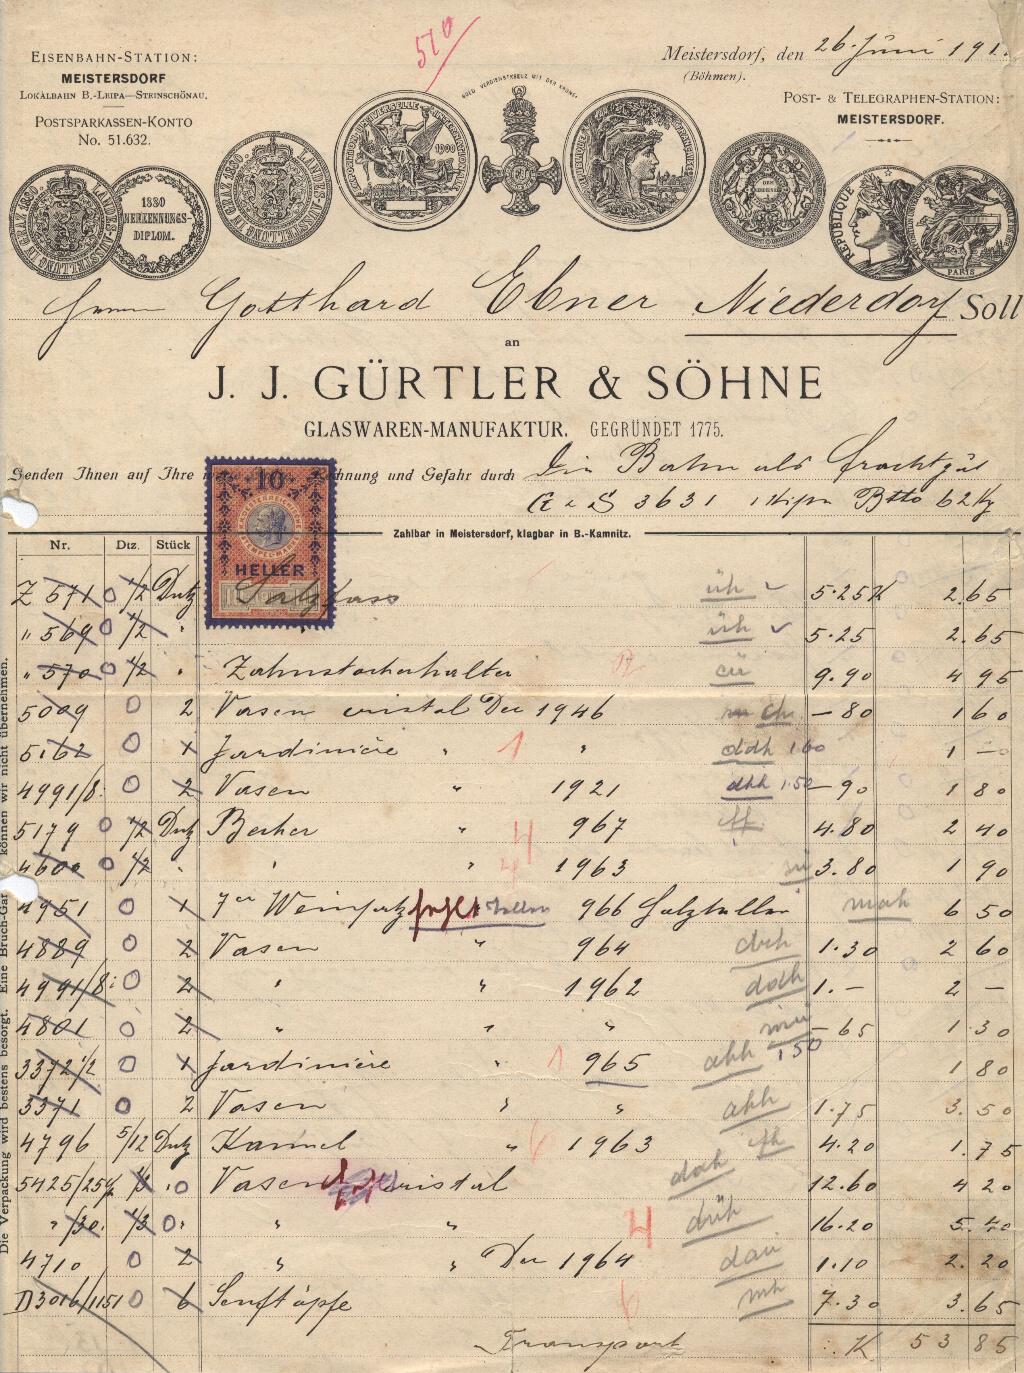 510
EISENBAHN-STATION:
MEISTERSDORF
LOKALBAHN B.-LEIPA—STEINSCHÖNAU.
POSTSPARKASSEN-KONTO
No. 51.632.
Meistersdorf, den 26. Juni 191
(Böhmen).
POST- & TELEGRAPHEN-STATION:
MEISTERSDORF.
1880
ANERKENNUNGS-
DIPLOM.
GOLD. VERDIENSTKREUZ MIT DER KRONE.
1900
REPUBLIQUE
PARIS
Herrn Gotthard Ebner Niederdorf Soll
an
J. J. GÜRTLER & SÖHNE
GLASWAREN-MANUFAKTUR. GEGRÜNDET 1775.
Senden Ihnen auf Ihre Rechnung und Gefahr durch die Bahn als Frachtgut
G & S 3631 1 Kiste Btto 62 Kg
Zahlbar in Meistersdorf, klagbar in B.-Kamnitz.
10
HELLER
Nr. Dtz. Stück
Z 571 0 1/2 Dutz Salzfass üh 5.25 K 2.65
" 569 0 1/2 " üh 5.25 2.65
" 570 0 1/2 " Zahnstocherhalter cü 9.90 4 95
5009 0 2 Vasen cristal Dec 1946 ch — 80 1 60
5162 0 1 Jardinière " 1 " ddh 1.60 1 —
4991/8 0 2 Vasen " 1921 dhh 1.50 — 90 1 80
5179 0 1/2 Dutz Becher " 4 967 4.80 2 40
4600 0 1/2 " " " 4 1963 3.80 1 90
4951 0 1 7er Weinsatz fehlt 966 Salzteller mah 6 50
4889 0 2 Vasen " 964 dch 1.30 2 60
4991/8 0 2 " " 1962 dodh 1.— 2 —
4801 0 2 " " " — 65 1 30
3372 1/2 0 1 Jardinière " 1 965 ahh 1.50 1 80
3371 0 2 Vasen " " ahh 1.75 3.50
4796 5/12 Dutz Kannel " 6 1963 4.20 1.75
5425/25 1/3 " 0 Vasen cristal dah 12.60 4 20
" /30 1/3 0 " " " 4 düh 16.20 5.40
4710 0 2 " " Dec 1964 dau 1.10 2.20
D3016/1151 0 6 Senftöpfe 6 mh 7.30 3.65
Transport K 53 85
Die Verpackung wird bestens besorgt. Eine Bruch-Gar können wir nicht übernehmen.